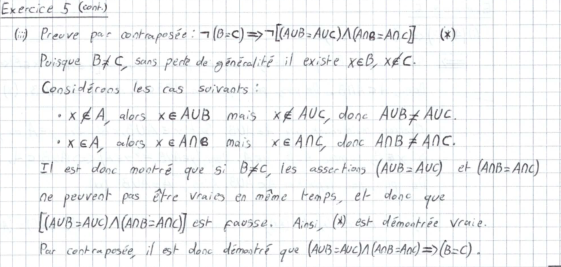 Exercice 5 (cont.)
(..) Preuve par contraposée : ¬(B=C) ⟹ ¬[(A∪B=A∪C)∧(A∩B=A∩C)] (*)
Puisque B≠C, sans perte de généralité il existe x∈B, x∉C.
Considérons les cas suivants :
• x∉A, alors x∈A∪B mais x∉A∪C, donc A∪B≠A∪C.
• x∈A, alors x∈A∩B mais x∈A∩C, donc A∩B≠A∩C.
Il est donc montré que si B≠C, les assertions (A∪B=A∪C) et (A∩B=A∩C)
ne peuvent pas être vraies en même temps, et donc que
[(A∪B=A∪C)∧(A∩B=A∩C)] est fausse. Ainsi, (*) est démontrée vraie.
Par contraposée, il est donc démontré que (A∪B=A∪C)∧(A∩B=A∩C) ⟹ (B=C).